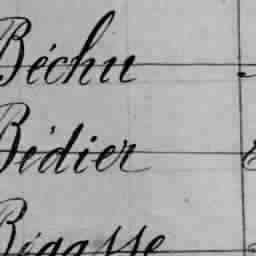 Béchu
Bédier
Bigasse